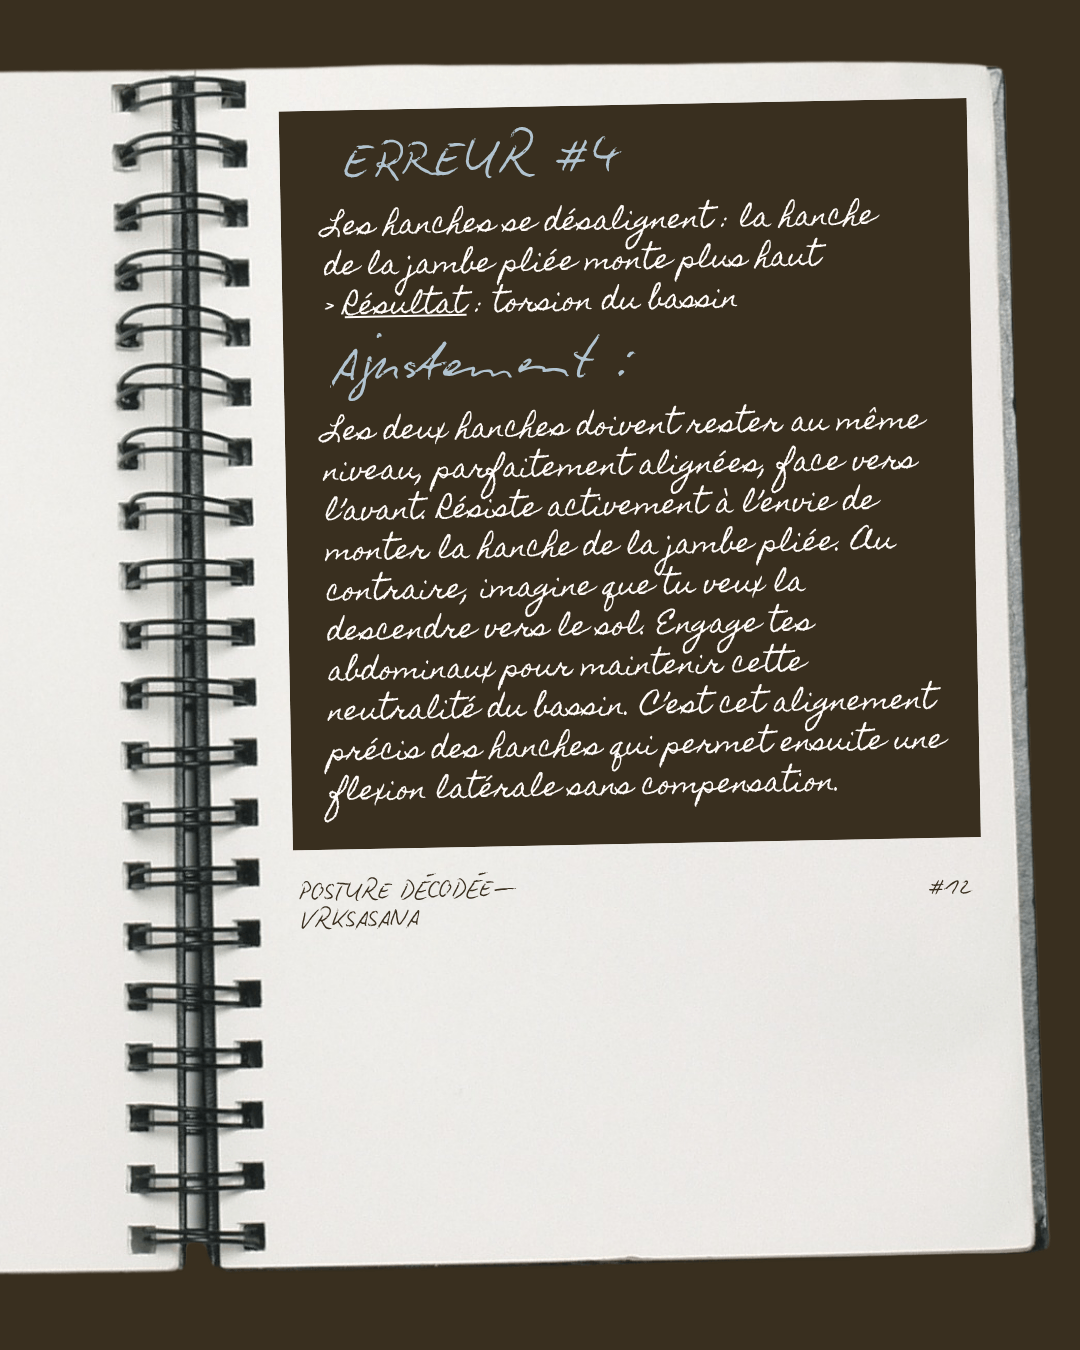 ERREUR #4
Les hanches se désalignent : la hanche
de la jambe pliée monte plus haut
> Résultat : torsion du bassin
Ajustement :
Les deux hanches doivent rester au même
niveau, parfaitement alignées, face vers
l'avant. Résiste activement à l'envie de
monter la hanche de la jambe pliée. Au
contraire, imagine que tu veux la
descendre vers le sol. Engage tes
abdominaux pour maintenir cette
neutralité du bassin. C'est cet alignement
précis des hanches qui permet ensuite une
flexion latérale sans compensation.
POSTURE DÉCODÉE—
VRKSASANA
#12